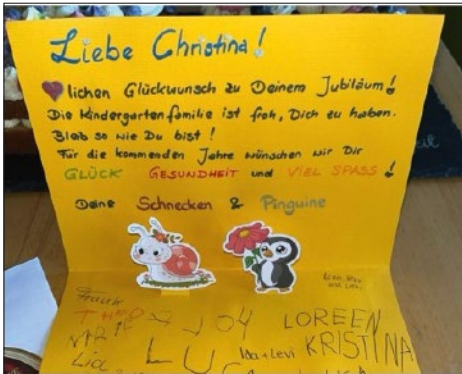 Liebe Christina!
lichen Glückwunsch zu Deinem Jubiläum!
Die Kindergartenfamilie ist froh, Dich zu haben.
Bleib so wie Du bist!
Für die kommenden Jahre wünschen wir Dir
GLÜCK GESUNDHEIT und VIEL SPASS!
Deine Schnecken & Pinguine
Frank
THEO
JOY
LOREEN
Ida + Levi
KRISTINA
Lia